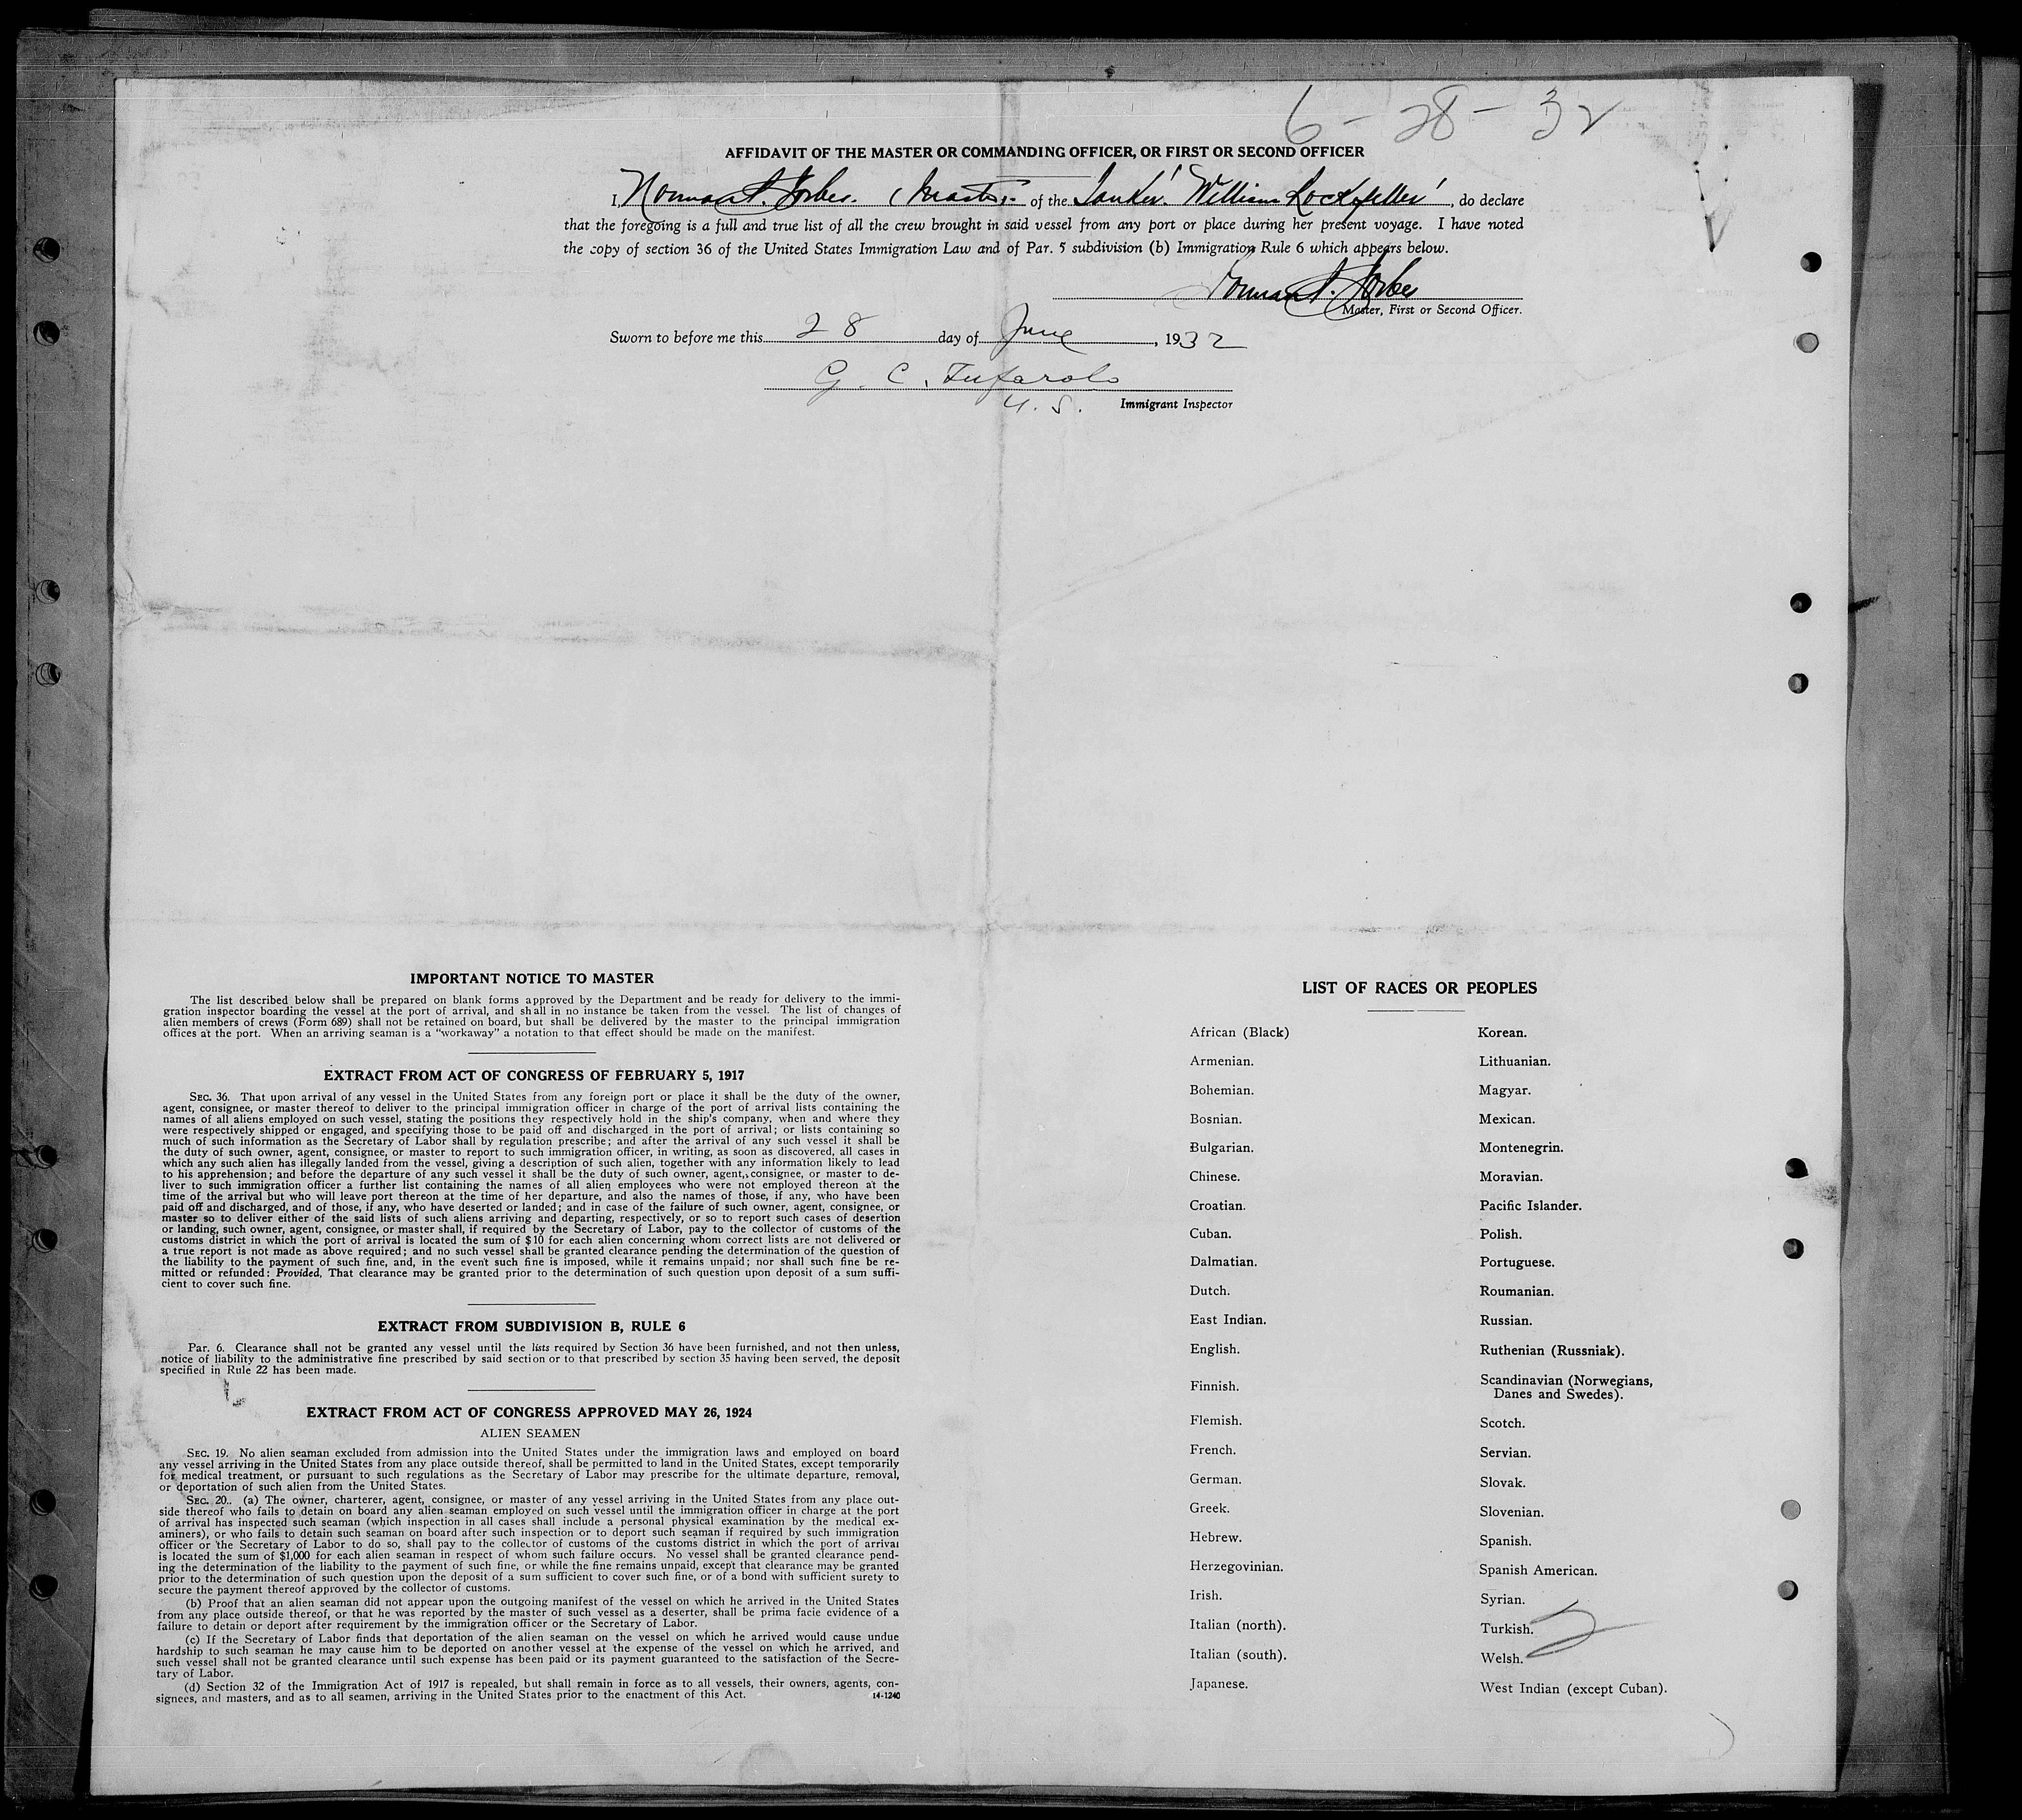 6-28-32
AFFIDAVIT OF THE MASTER OR COMMANDING OFFICER, OR FIRST OR SECOND OFFICER
I, Norman A. Forbes. (Master) of the Tanker "William Rockefeller", do declare
that the foregoing is a full and true list of all the crew brought in said vessel from any port or place during her present voyage. I have noted
the copy of section 36 of the United States Immigration Law and of Par. 5 subdivision (b) Immigration Rule 6 which appears below.
Norman A. Forbes
Master, First or Second Officer.
Sworn to before me this 28 day of June, 1932
G. C. Tufarolo
U. S. Immigrant Inspector
IMPORTANT NOTICE TO MASTER
The list described below shall be prepared on blank forms approved by the Department and be ready for delivery to the immi-
gration inspector boarding the vessel at the port of arrival, and shall in no instance be taken from the vessel. The list of changes of
alien members of crews (Form 689) shall not be retained on board, but shall be delivered by the master to the principal immigration
offices at the port. When an arriving seaman is a "workaway" a notation to that effect should be made on the manifest.
EXTRACT FROM ACT OF CONGRESS OF FEBRUARY 5, 1917
SEC. 36. That upon arrival of any vessel in the United States from any foreign port or place it shall be the duty of the owner,
agent, consignee, or master thereof to deliver to the principal immigration officer in charge of the port of arrival lists containing the
names of all aliens employed on such vessel, stating the positions they respectively hold in the ship's company, when and where they
were respectively shipped or engaged, and specifying those to be paid off and discharged in the port of arrival; or lists containing so
much of such information as the Secretary of Labor shall by regulation prescribe; and after the arrival of any such vessel it shall be
the duty of such owner, agent, consignee, or master to report to such immigration officer, in writing, as soon as discovered, all cases in
which any such alien has illegally landed from the vessel, giving a description of such alien, together with any information likely to lead
to his apprehension; and before the departure of any such vessel it shall be the duty of such owner, agent, consignee, or master to de-
liver to such immigration officer a further list containing the names of all alien employees who were not employed thereon at the
time of the arrival but who will leave port thereon at the time of her departure, and also the names of those, if any, who have been
paid off and discharged, and of those, if any, who have deserted or landed; and in case of the failure of such owner, agent, consignee, or
master so to deliver either of the said lists of such aliens arriving and departing, respectively, or so to report such cases of desertion
or landing, such owner, agent, consignee, or master shall, if required by the Secretary of Labor, pay to the collector of customs of the
customs district in which the port of arrival is located the sum of $10 for each alien concerning whom correct lists are not delivered or
a true report is not made as above required; and no such vessel shall be granted clearance pending the determination of the question of
the liability to the payment of such fine, and, in the event such fine is imposed, while it remains unpaid; nor shall such fine be re-
mitted or refunded: Provided, That clearance may be granted prior to the determination of such question upon deposit of a sum suffi-
cient to cover such fine.
EXTRACT FROM SUBDIVISION B, RULE 6
Par. 6. Clearance shall not be granted any vessel until the lists required by Section 36 have been furnished, and not then unless,
notice of liability to the administrative fine prescribed by said section or to that prescribed by section 35 having been served, the deposit
specified in Rule 22 has been made.
EXTRACT FROM ACT OF CONGRESS APPROVED MAY 26, 1924
ALIEN SEAMEN
SEC. 19. No alien seaman excluded from admission into the United States under the immigration laws and employed on board
any vessel arriving in the United States from any place outside thereof, shall be permitted to land in the United States, except temporarily
for medical treatment, or pursuant to such regulations as the Secretary of Labor may prescribe for the ultimate departure, removal,
or deportation of such alien from the United States.
SEC. 20.. (a) The owner, charterer, agent, consignee, or master of any vessel arriving in the United States from any place out-
side thereof who fails to detain on board any alien seaman employed on such vessel until the immigration officer in charge at the port
of arrival has inspected such seaman (which inspection in all cases shall include a personal physical examination by the medical ex-
aminers), or who fails to detain such seaman on board after such inspection or to deport such seaman if required by such immigration
officer or the Secretary of Labor to do so, shall pay to the collector of customs of the customs district in which the port of arrival
is located the sum of $1,000 for each alien seaman in respect of whom such failure occurs. No vessel shall be granted clearance pend-
ing the determination of the liability to the payment of such fine, or while the fine remains unpaid, except that clearance may be granted
prior to the determination of such question upon the deposit of a sum sufficient to cover such fine, or of a bond with sufficient surety to
secure the payment thereof approved by the collector of customs.
(b) Proof that an alien seaman did not appear upon the outgoing manifest of the vessel on which he arrived in the United States
from any place outside thereof, or that he was reported by the master of such vessel as a deserter, shall be prima facie evidence of a
failure to detain or deport after requirement by the immigration officer or the Secretary of Labor.
(c) If the Secretary of Labor finds that deportation of the alien seaman on the vessel on which he arrived would cause undue
hardship to such seaman he may cause him to be deported on another vessel at the expense of the vessel on which he arrived, and
such vessel shall not be granted clearance until such expense has been paid or its payment guaranteed to the satisfaction of the Secre-
tary of Labor.
(d) Section 32 of the Immigration Act of 1917 is repealed, but shall remain in force as to all vessels, their owners, agents, con-
signees, and masters, and as to all seamen, arriving in the United States prior to the enactment of this Act.
14-1240
LIST OF RACES OR PEOPLES
African (Black)
Armenian.
Bohemian.
Bosnian.
Bulgarian.
Chinese.
Croatian.
Cuban.
Dalmatian.
Dutch.
East Indian.
English.
Finnish.
Flemish.
French.
German.
Greek.
Hebrew.
Herzegovinian.
Irish.
Italian (north).
Italian (south).
Japanese.
Korean.
Lithuanian.
Magyar.
Mexican.
Montenegrin.
Moravian.
Pacific Islander.
Polish.
Portuguese.
Roumanian.
Russian.
Ruthenian (Russniak).
Scandinavian (Norwegians,
Danes and Swedes).
Scotch.
Servian.
Slovak.
Slovenian.
Spanish.
Spanish American.
Syrian.
Turkish.
Welsh.
West Indian (except Cuban).
2